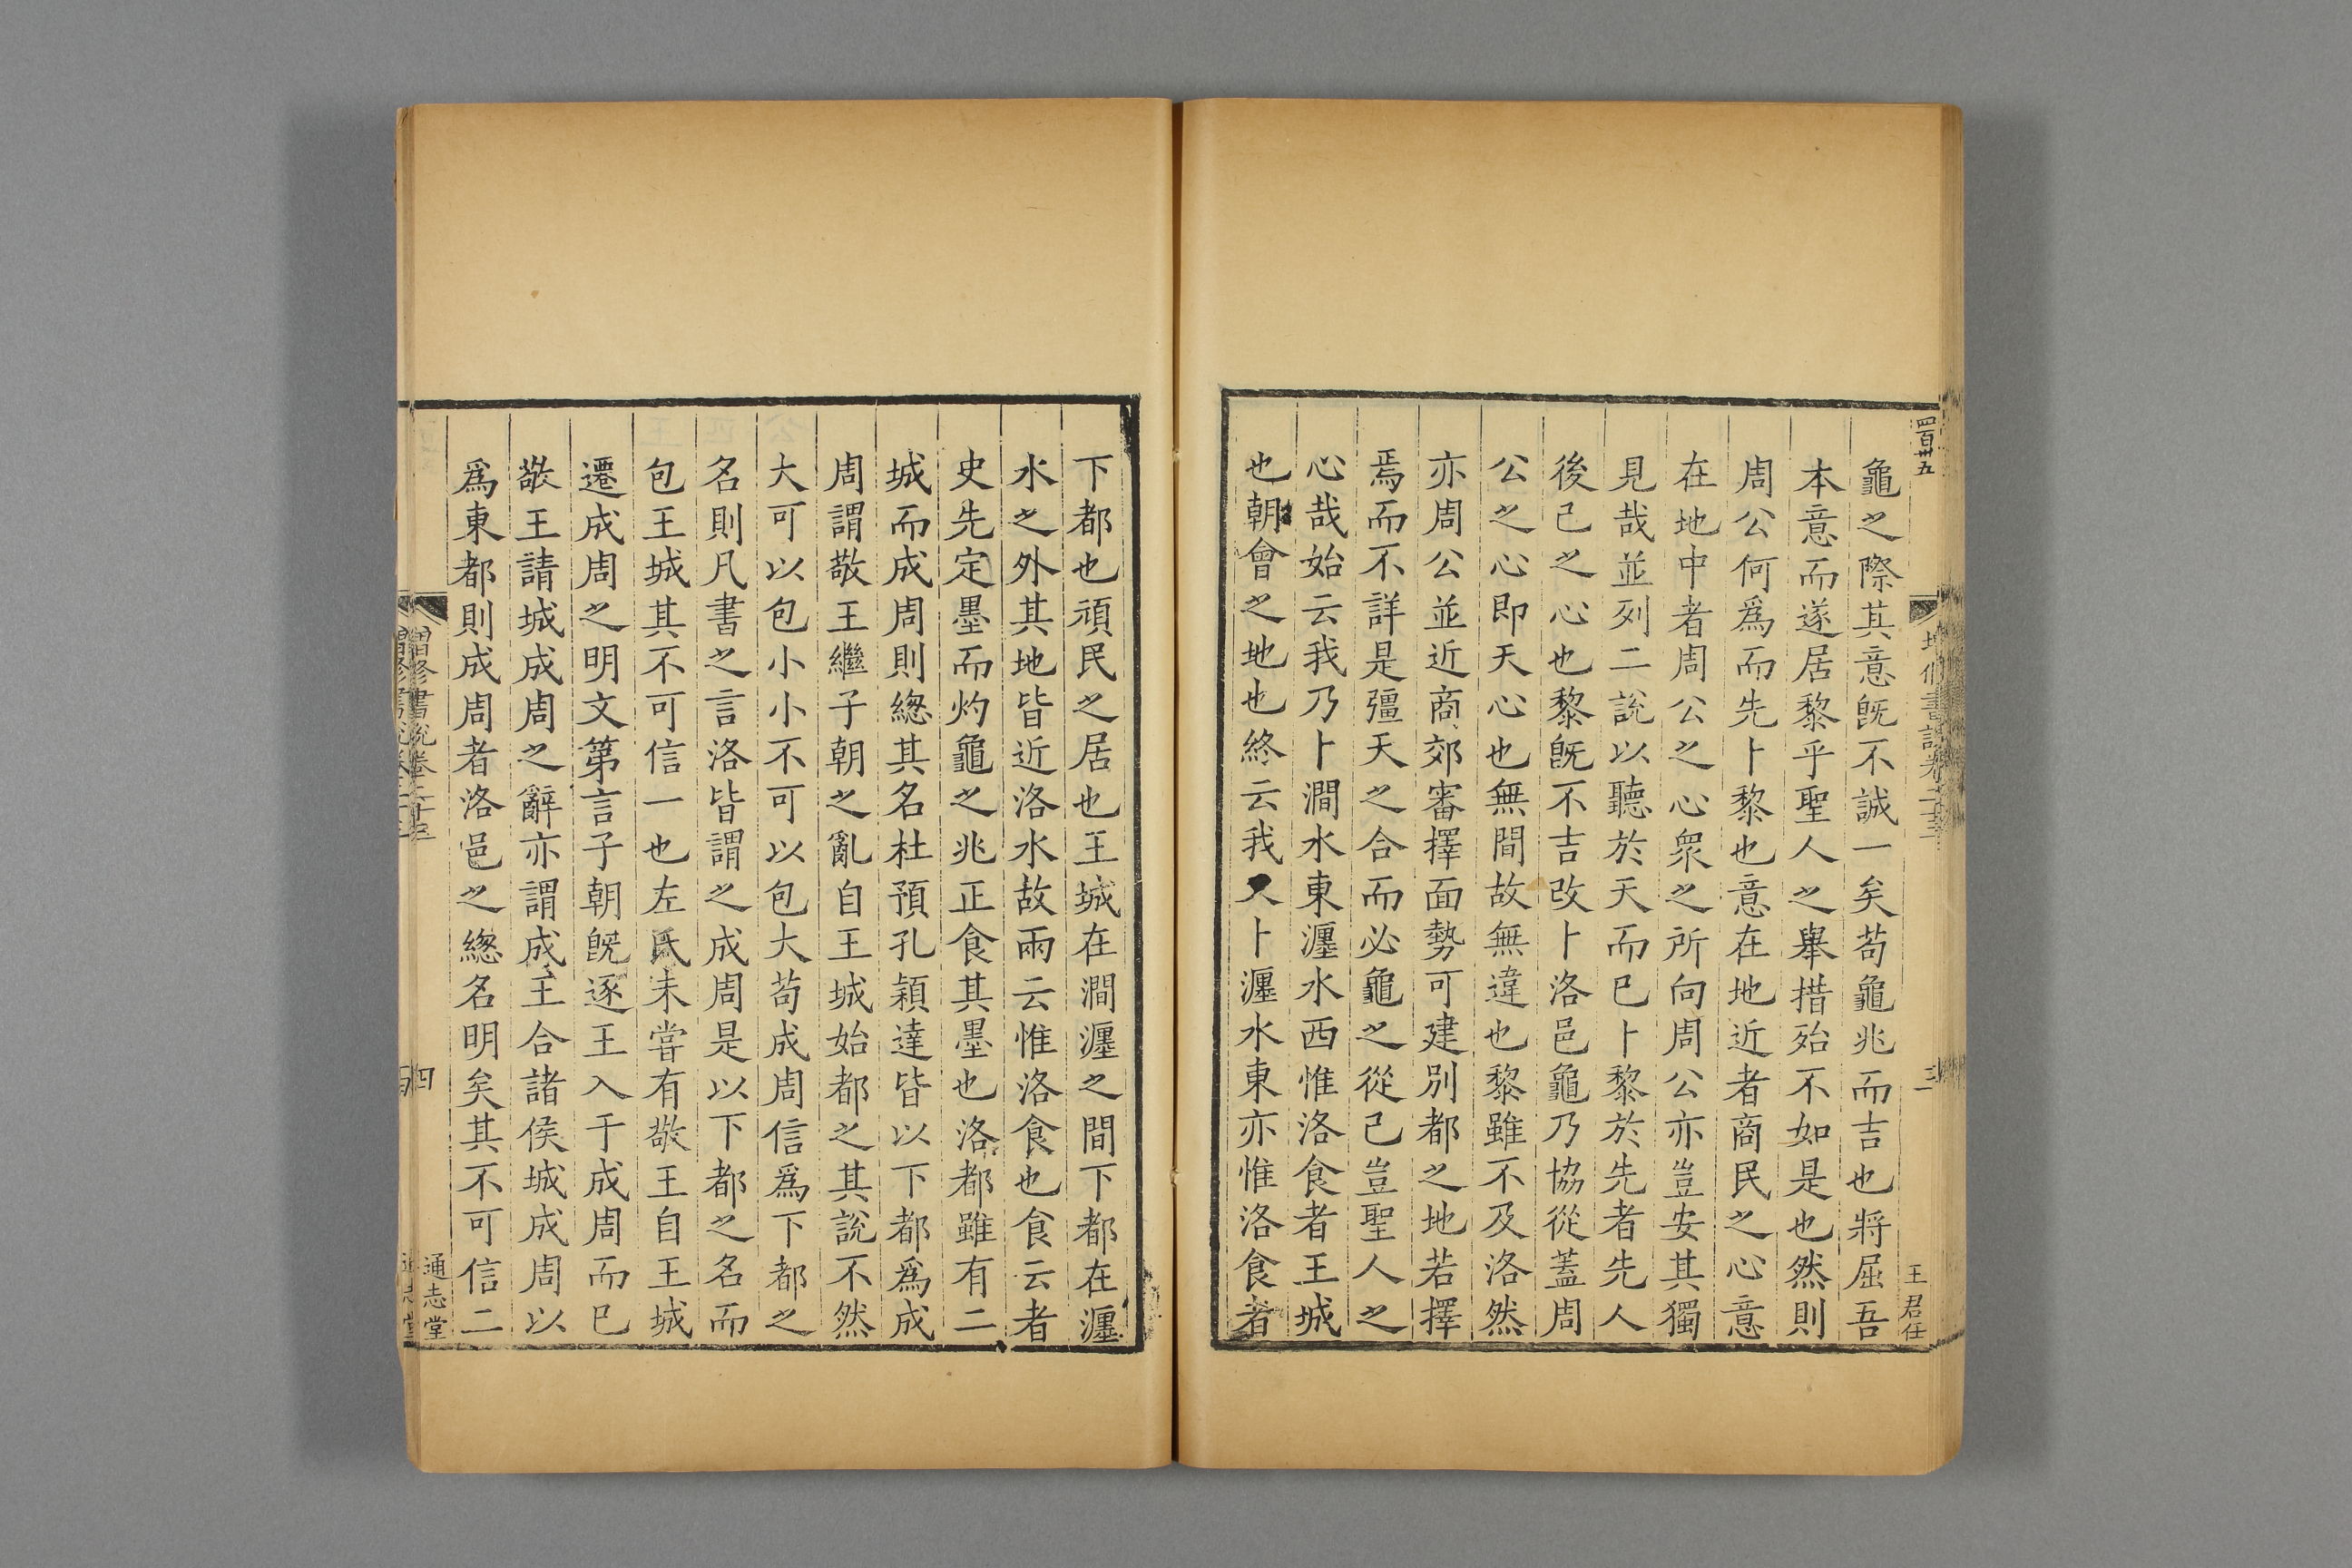 四百卅五
王君任
龜之際其意旣不誠一矣苟龜兆而吉也將屈吾
本意而遂居黎乎聖人之舉措殆不如是也然則
周公何爲而先卜黎也意在地近者商民之心意
在地中者周公之心衆之所向周公亦豈安其獨
見哉並列二說以聽於天而已卜黎於先者先人
後己之心也黎旣不吉改卜洛邑龜乃協從蓋周
公之心即天心也無間故無違也黎雖不及洛然
亦周公並近商郊審擇面勢可建別都之地若擇
焉而不詳是彊天之合而必龜之從己豈聖人之
心哉始云我乃卜澗水東瀍水西惟洛食者王城
也朝會之地也終云我又卜瀍水東亦惟洛食者
下都也頑民之居也王城在澗瀍之間下都在瀍
水之外其地皆近洛水故兩云惟洛食也食云者
史先定墨而灼龜之兆正食其墨也洛都雖有二
城而成周則緫其名杜預孔穎達皆以下都爲成
周謂敬王繼子朝之亂自王城始都之其說不然
大可以包小小不可以包大苟成周信爲下都之
名則凡書之言洛皆謂之成周是以下都之名而
包王城其不可信一也左氏未嘗有敬王自王城
遷成周之明文第言子朝旣逐王入于成周而已
敬王請城成周之辭亦謂成王合諸侯城成周以
爲東都則成周者洛邑之緫名明矣其不可信二
增修書說卷二十三
四
通志堂